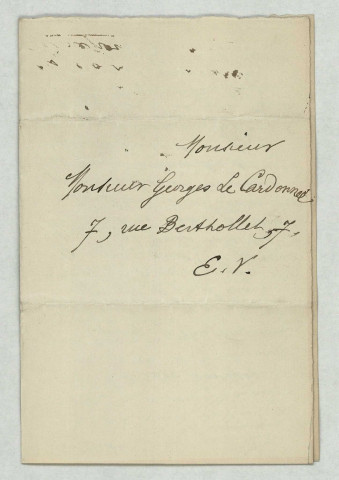 Monsieur
Monsieur Georges Le Cardonnel
7, rue Berthollet, 7,
E. V.